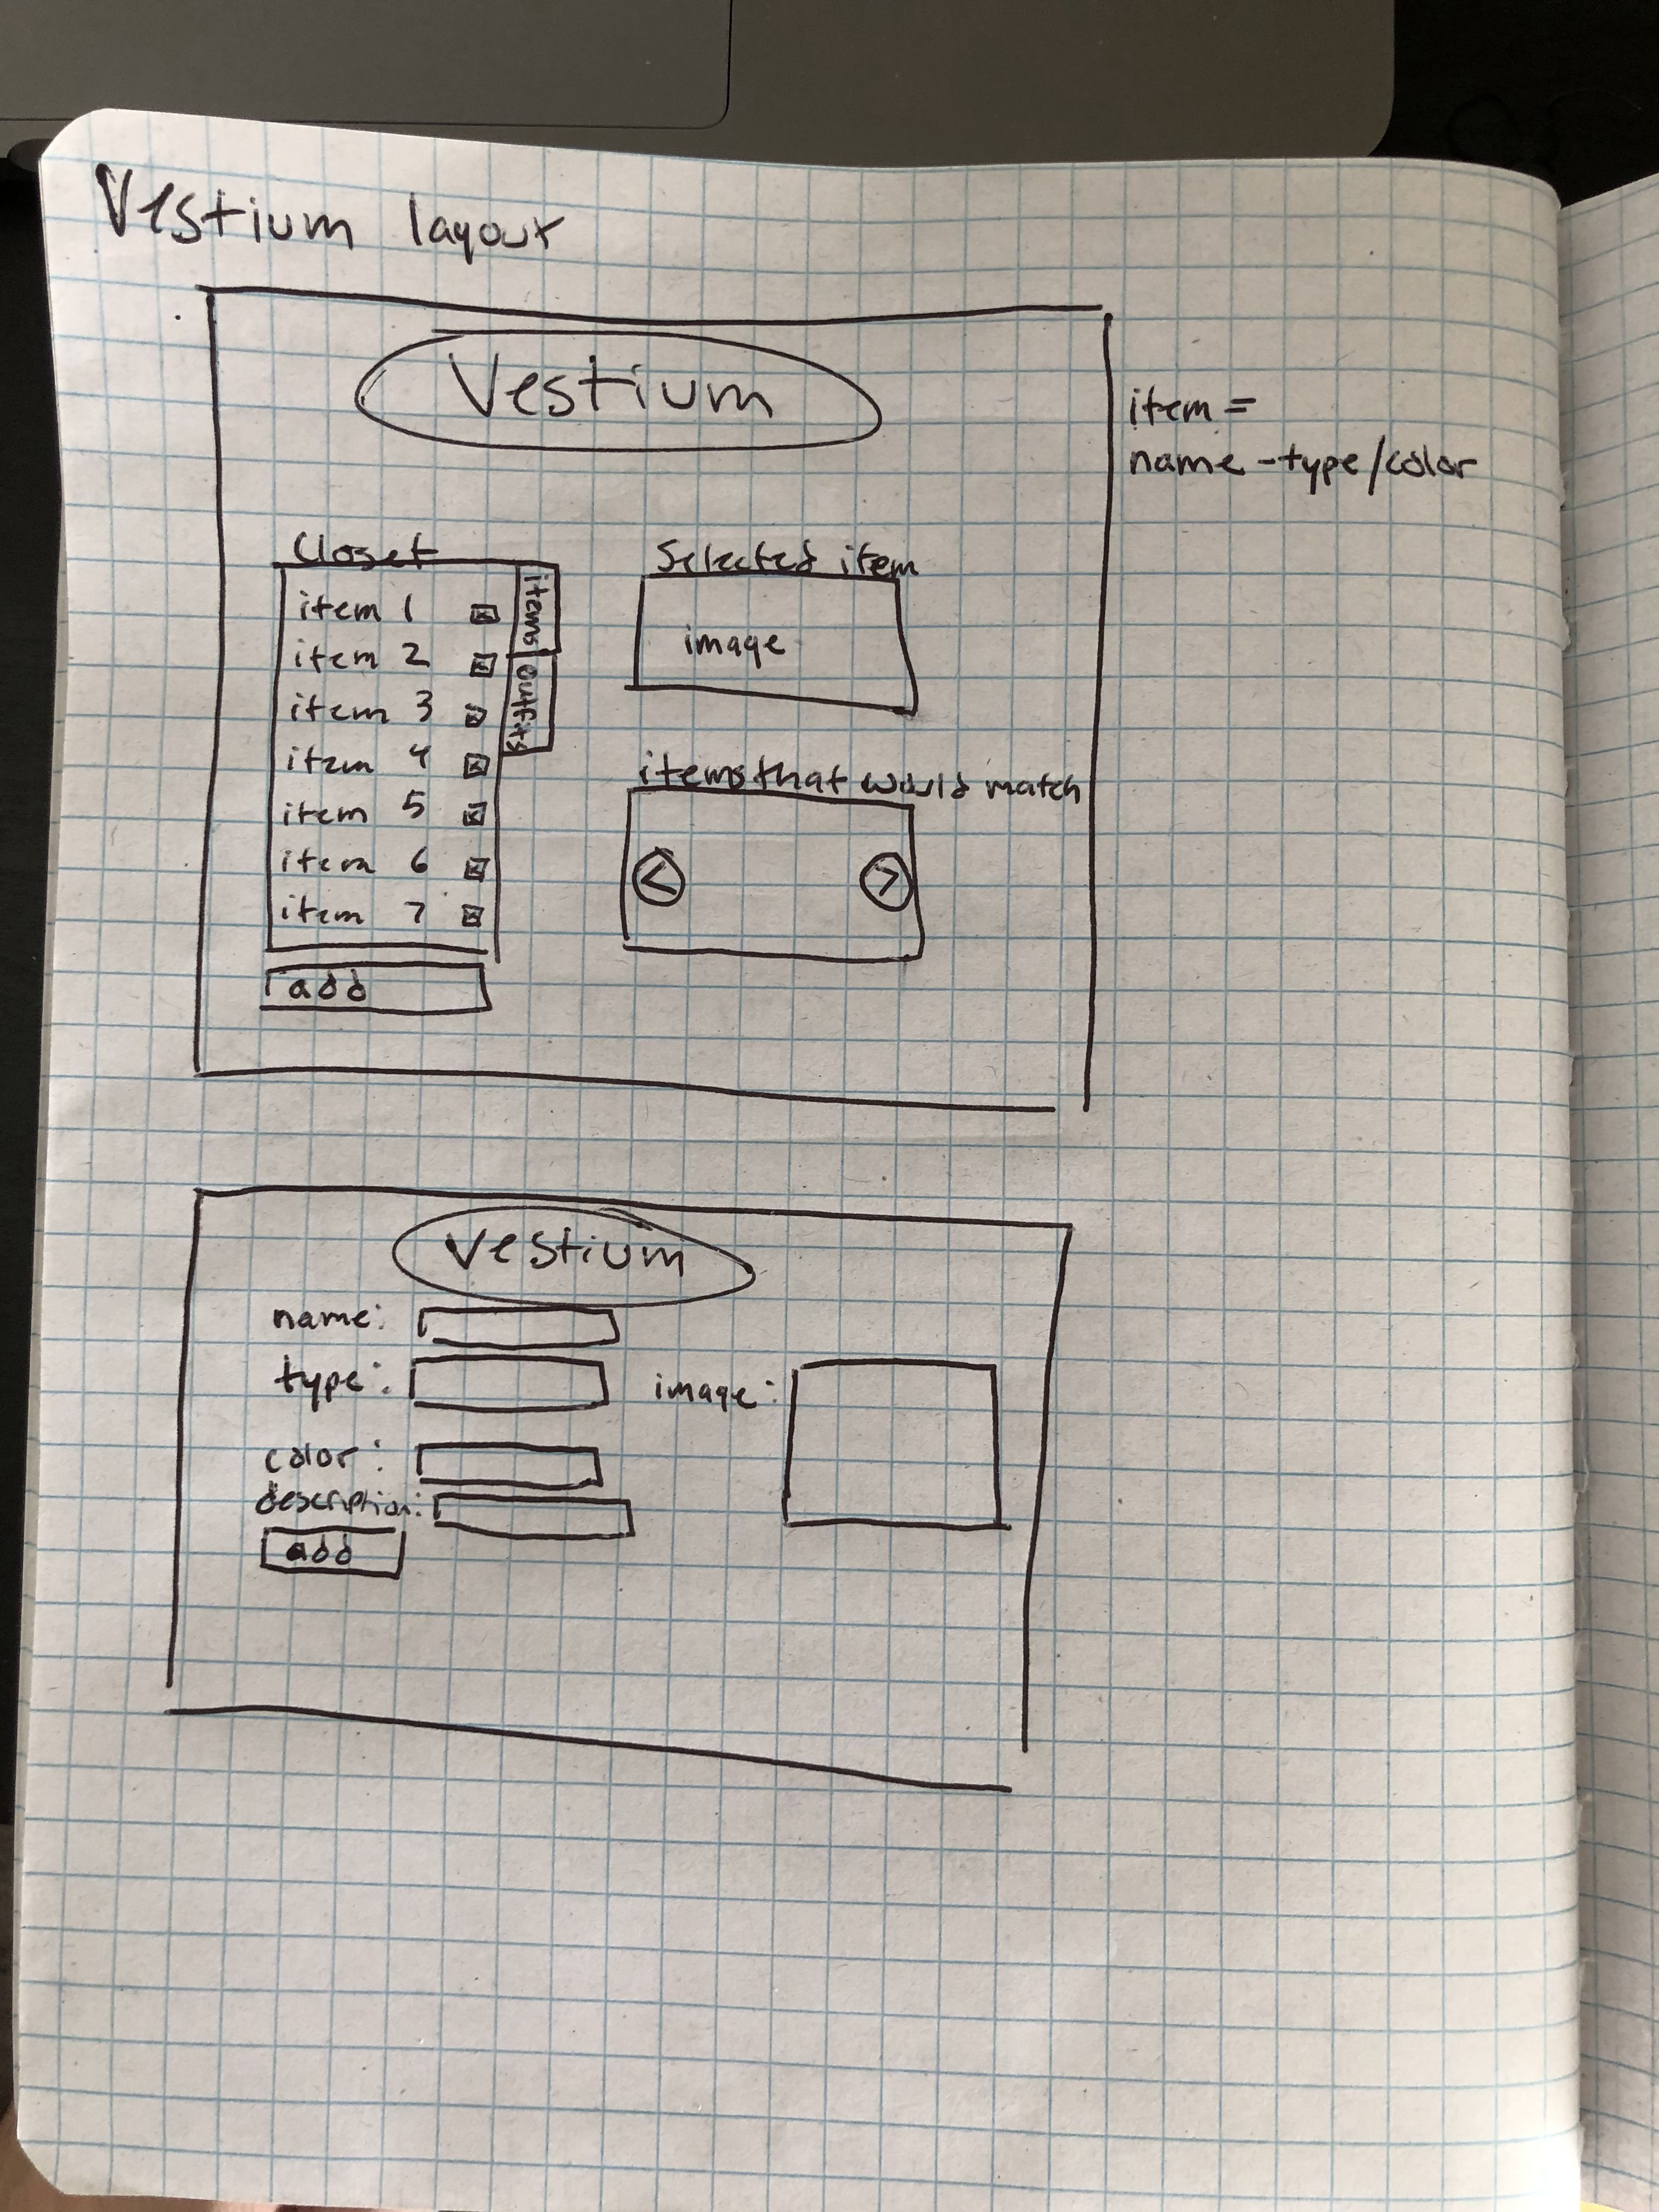 Vestium layout
Vestium
item =
name - type/color
Closet
item 1
item 2
item 3
item 4
item 5
item 6
item 7
add
items
outfits
Selected item
image
items that would match
<
>
Vestium
name:
type:
color:
description:
add
image: